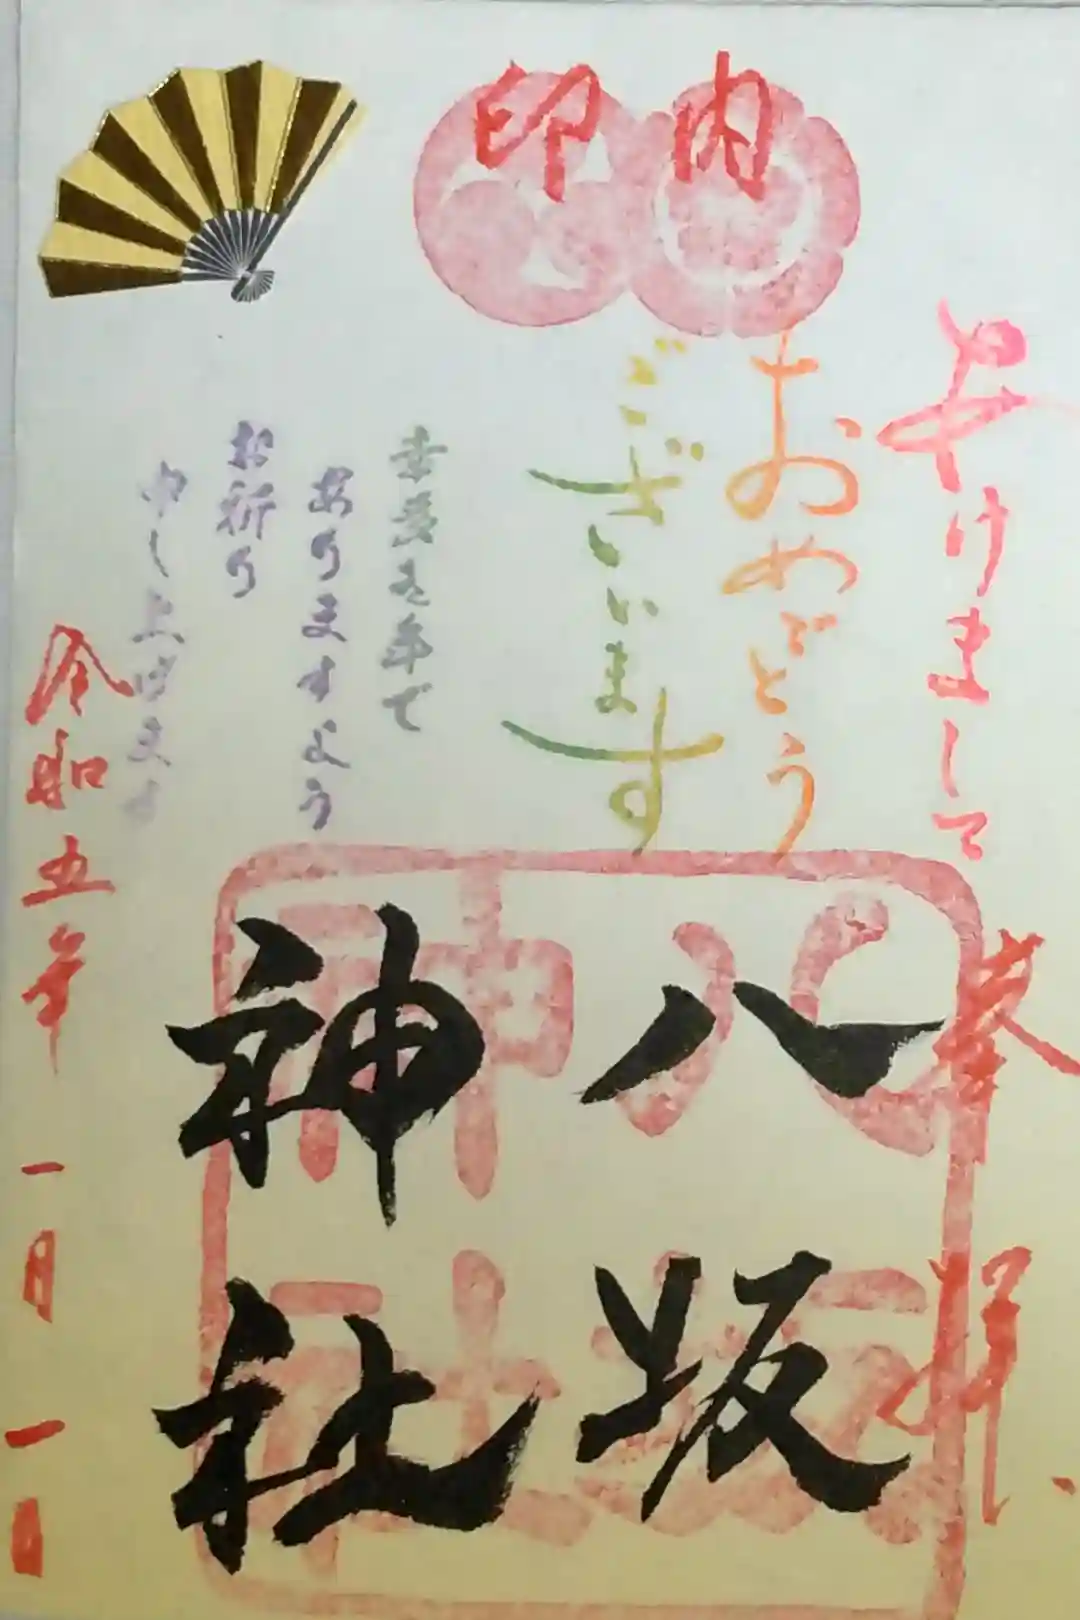 印内
あけまして
おめでとう
ございます
幸多き年で
ありますよう
お祈り
申し上げます
奉拝
八坂
神社
八坂
神社
令和五年一月一日